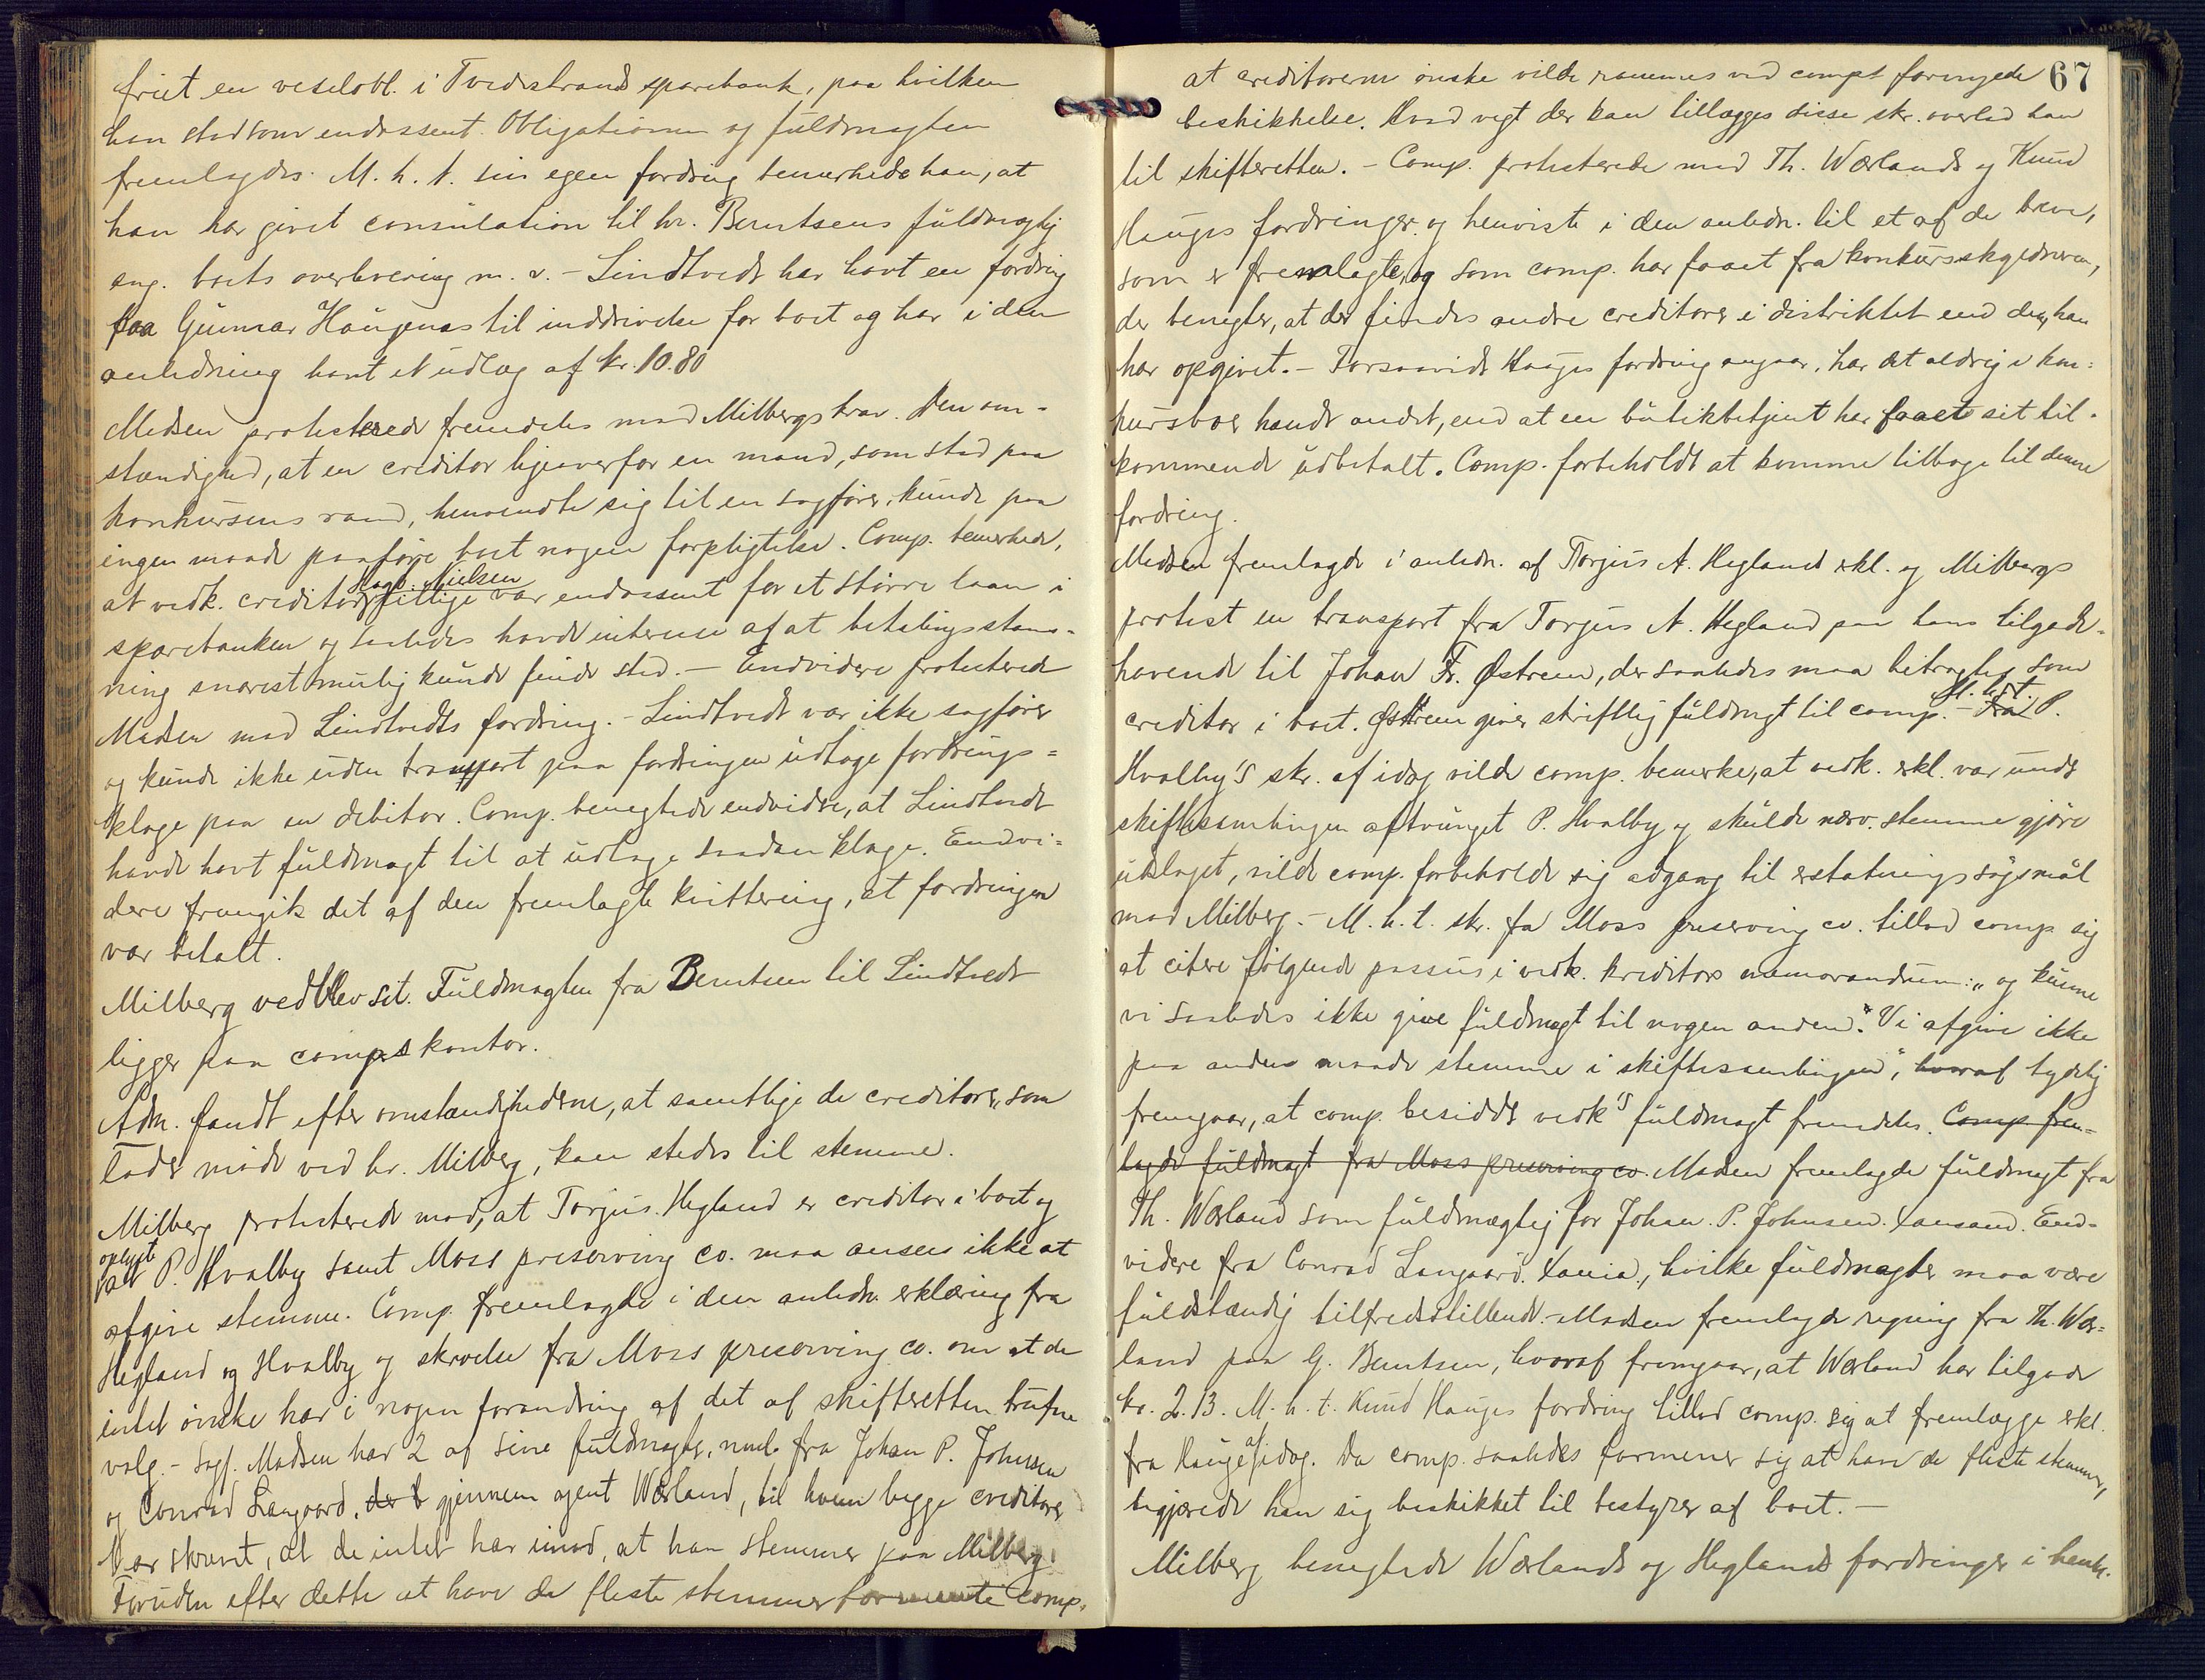 friet en vexelobl. i Tvedestrands sparebank, paa hvilken
han stod som endossent. Obligationen og fuldmagten
fremlagdes. M. h. t. sin egen fordring bemerkede han, at
han har givet consulation til hr. Berntsens fuldmægtig
ang. boets overlevering m. v. – Lindtvedt har havt en fordring
paa Gunnar Haugenes til inddrivelse for boet og har i den
anledning havt et udlæg af kr. 10.80
Madsen protesterede fremdeles mod Milbergs krav. Den om-
stændighed, at en creditor ligeoverfor en mand, som stod paa
konkursens rand, henvendte sig til en sagfører, kunde paa
ingen maade paaføre boet nogen forpligtelse. Comp. bemerkede,
Aagb. Nielsen
at vedk. creditor var endossent for et større laan i
sparebanken og saaledes havde interesse af at betalingsstans-
ning snarest mulig kunde finde sted. – Endvidere protesterede
Madsen mod Lindtvedts fordring. – Lindtvedt var ikke sagfører
og kunde ikke uden transport paa fordringen udtage fordrings-
klage paa en debitor. Comp. benegtede endvidere, at Lindtvedt
havde havt fuldmagt til at udtage saadan klage. Endvi-
dere fremgik det af den fremlagte kvittering, at fordringen
var betalt.
Milberg vedblev sit. Fuldmagten fra Berntsen til Lindtvedt
ligger paa comps kontor.
Adm. fandt efter omstændighederne, at samtlige de creditorer, som
lader møde ved hr. Milberg, kan stedes til stemme.
Milberg protesterede mod, at Torjus Hegland er creditor i boet og
oplyst
at P. Hvalby samt Moss preserving co. maa ansees ikke at
afgive stemme. Comp. fremlagde i den anledn. erklæring fra
Hegland og Hvalby og skrivelse fra Moss preserving co. om at de
intet ønske har i nogen forandring af det af skifteretten trufne
valg. – Sagf. Madsen har 2 af sine fuldmagter, nml. fra Johan P. Johnsen
og Conrad Langaard, der b gjennem agent Wærland, til hvem begge creditorer
har skrevet, at de intet har imod, at han stemmer paa Milberg.
Foruden efter dette at have de fleste stemmer formente comp.
67
at creditorerne ønske vilde rammes ved compt fornyede
beskikkelse. Hvad vegt der kan tillægges disse skr. overlod han
til skifteretten. – Comp. protesterede mod Th. Wærlands og Knud
Hauges fordringer og henviste i den anledn. til et af de breve,
som er fremlagte, og som comp. har faaet fra konkursskyldneren,
der benegter, at der findes andre creditorer i distriktet end dem, han
har opgivet. – Forsaavidt Hauges fordring angaar, har det aldrig i kon-
kursboer hændt andet, end at en butikbetjent har faaet sit til-
kommende udbetalt. Comp. forbeholdt at komme tilbage til denne
fordring.
Madsen fremlagde i anledn. af Torjus A. Hegland erkl. og Milbergs
protest en transport fra Torjus A. Hegland paa hans tilgode-
havende til Johan Fr. Østrem, der saaledes maa betragtes som
M. h. t.
creditor i boet. Østrem giver skriftlig fuldmagt til comp. – Fra P.
Hvalby's skr. af idag vilde comp. bemerke, at vedk. erkl. var under
skiftesamlingen aftvunget P. Hvalby og skulde nærv. stemme gjøre
udslaget, vilde comp. forbeholde sig adgang til erstatningssøgsmål
mod Milberg. – M. h. t. skr. fra Moss preserving co. tillod comp. sig
at citere følgende passus i vedk. kreditors memorandum: „og kunne
vi saaledes ikke give fuldmagt til nogen anden." Vi afgive ikke
paa anden maade stemme i skiftesamlingen", hvoraf tydelig
fremgaar, at comp. besidder vedk's fuldmagt fremdeles. Comp. frem-
lagde fuldmagt fra Moss preserving co. Madsen fremlagde fuldmagt fra
Th. Wærland som fuldmægtig for Johan P. Johnsen. Xansand. End-
videre fra Conrad Langaard. Xania., hvilke fuldmagter maa være
fuldstændig tilfredsstillende. – Madsen fremlagde regning fra Th. Wær-
land paa G. Berntsen, hvoraf fremgaar, at Wærland har tilgode
kr. 2.13. M. h. t. Knud Hauges fordring tillod comp. sig at fremlægge erkl.
fra Hauge af idag. Da comp. saaledes formener sig at have de fleste stemmer,
begjærede han sig beskikket til bestyrer af boet. –
Milberg benegtede Wærlands og Heglands fordringer i henh.